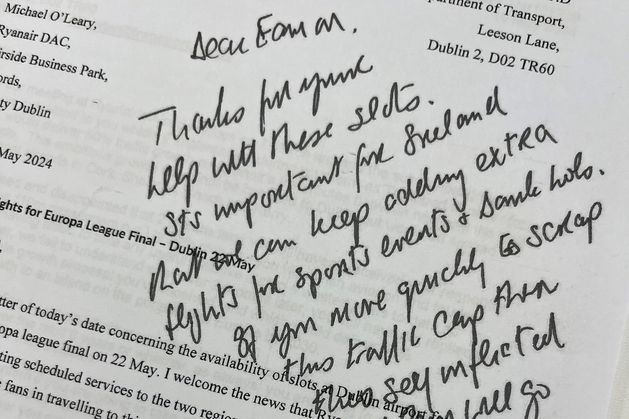 Michael O'Leary,
Ryanair DAC,
rside Business Park,
ords,
ty Dublin
May 2024
rtment of Transport,
Leeson Lane,
Dublin 2, D02 TR60
Dear Eamon.
Thanks for your
help with these slots.
It's important for Ireland
that we can keep adding extra
flights for sports events & bank hols.
If you move quickly to scrap
this traffic cap then
this self inflicted
will go
ghts for Europa League Final – Dublin 22 May
tter of today's date concerning the availability of slots at Dublin airport
opa league final on 22 May. I welcome the news that
ting scheduled services to the two
fans in travelling to